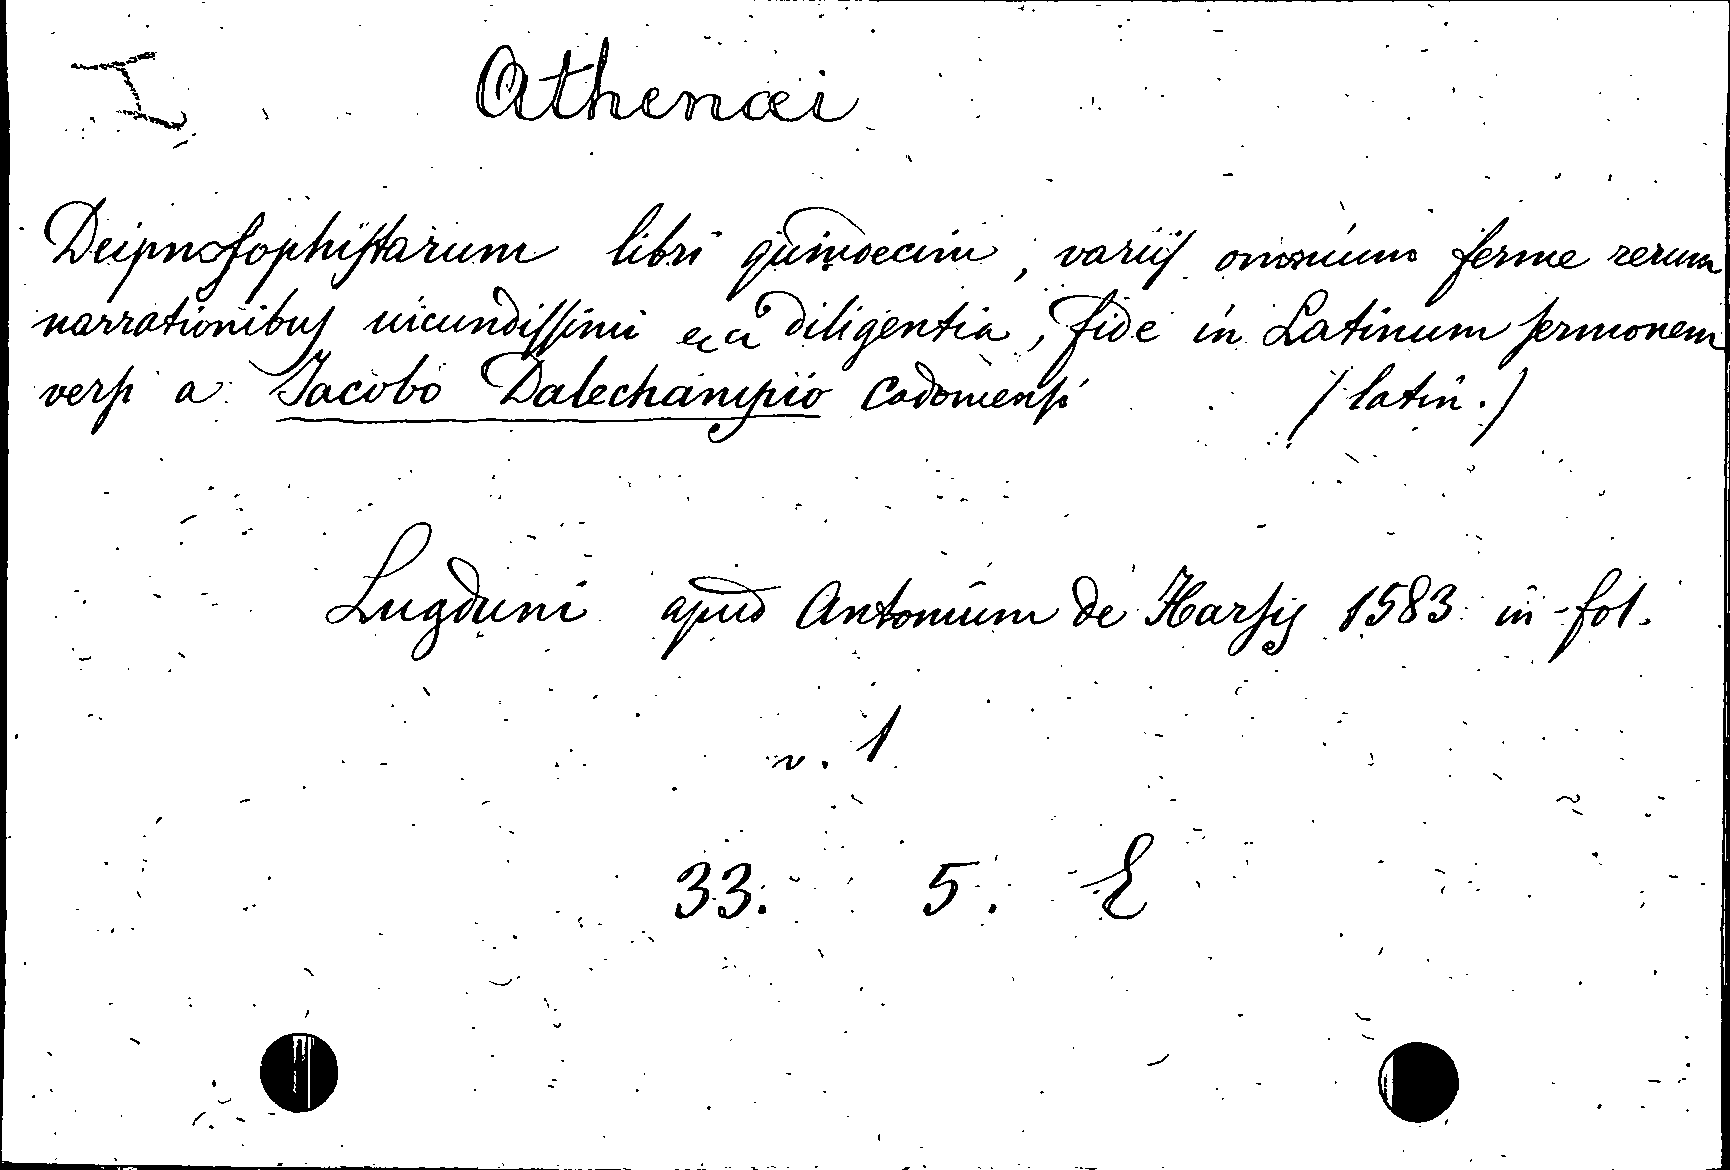 I Athenæi
Deipnosophistarum libri quindecim, variis omnium ferme rerum
narrationibus iucundissimi ea diligentia, fide in Latinum sermonem
versi a Jacobo Dalechampio Cadomensi (latin.)
Lugduni apud Antonium de Harsis 1583 in-fol.
v. 1
33. 5. E